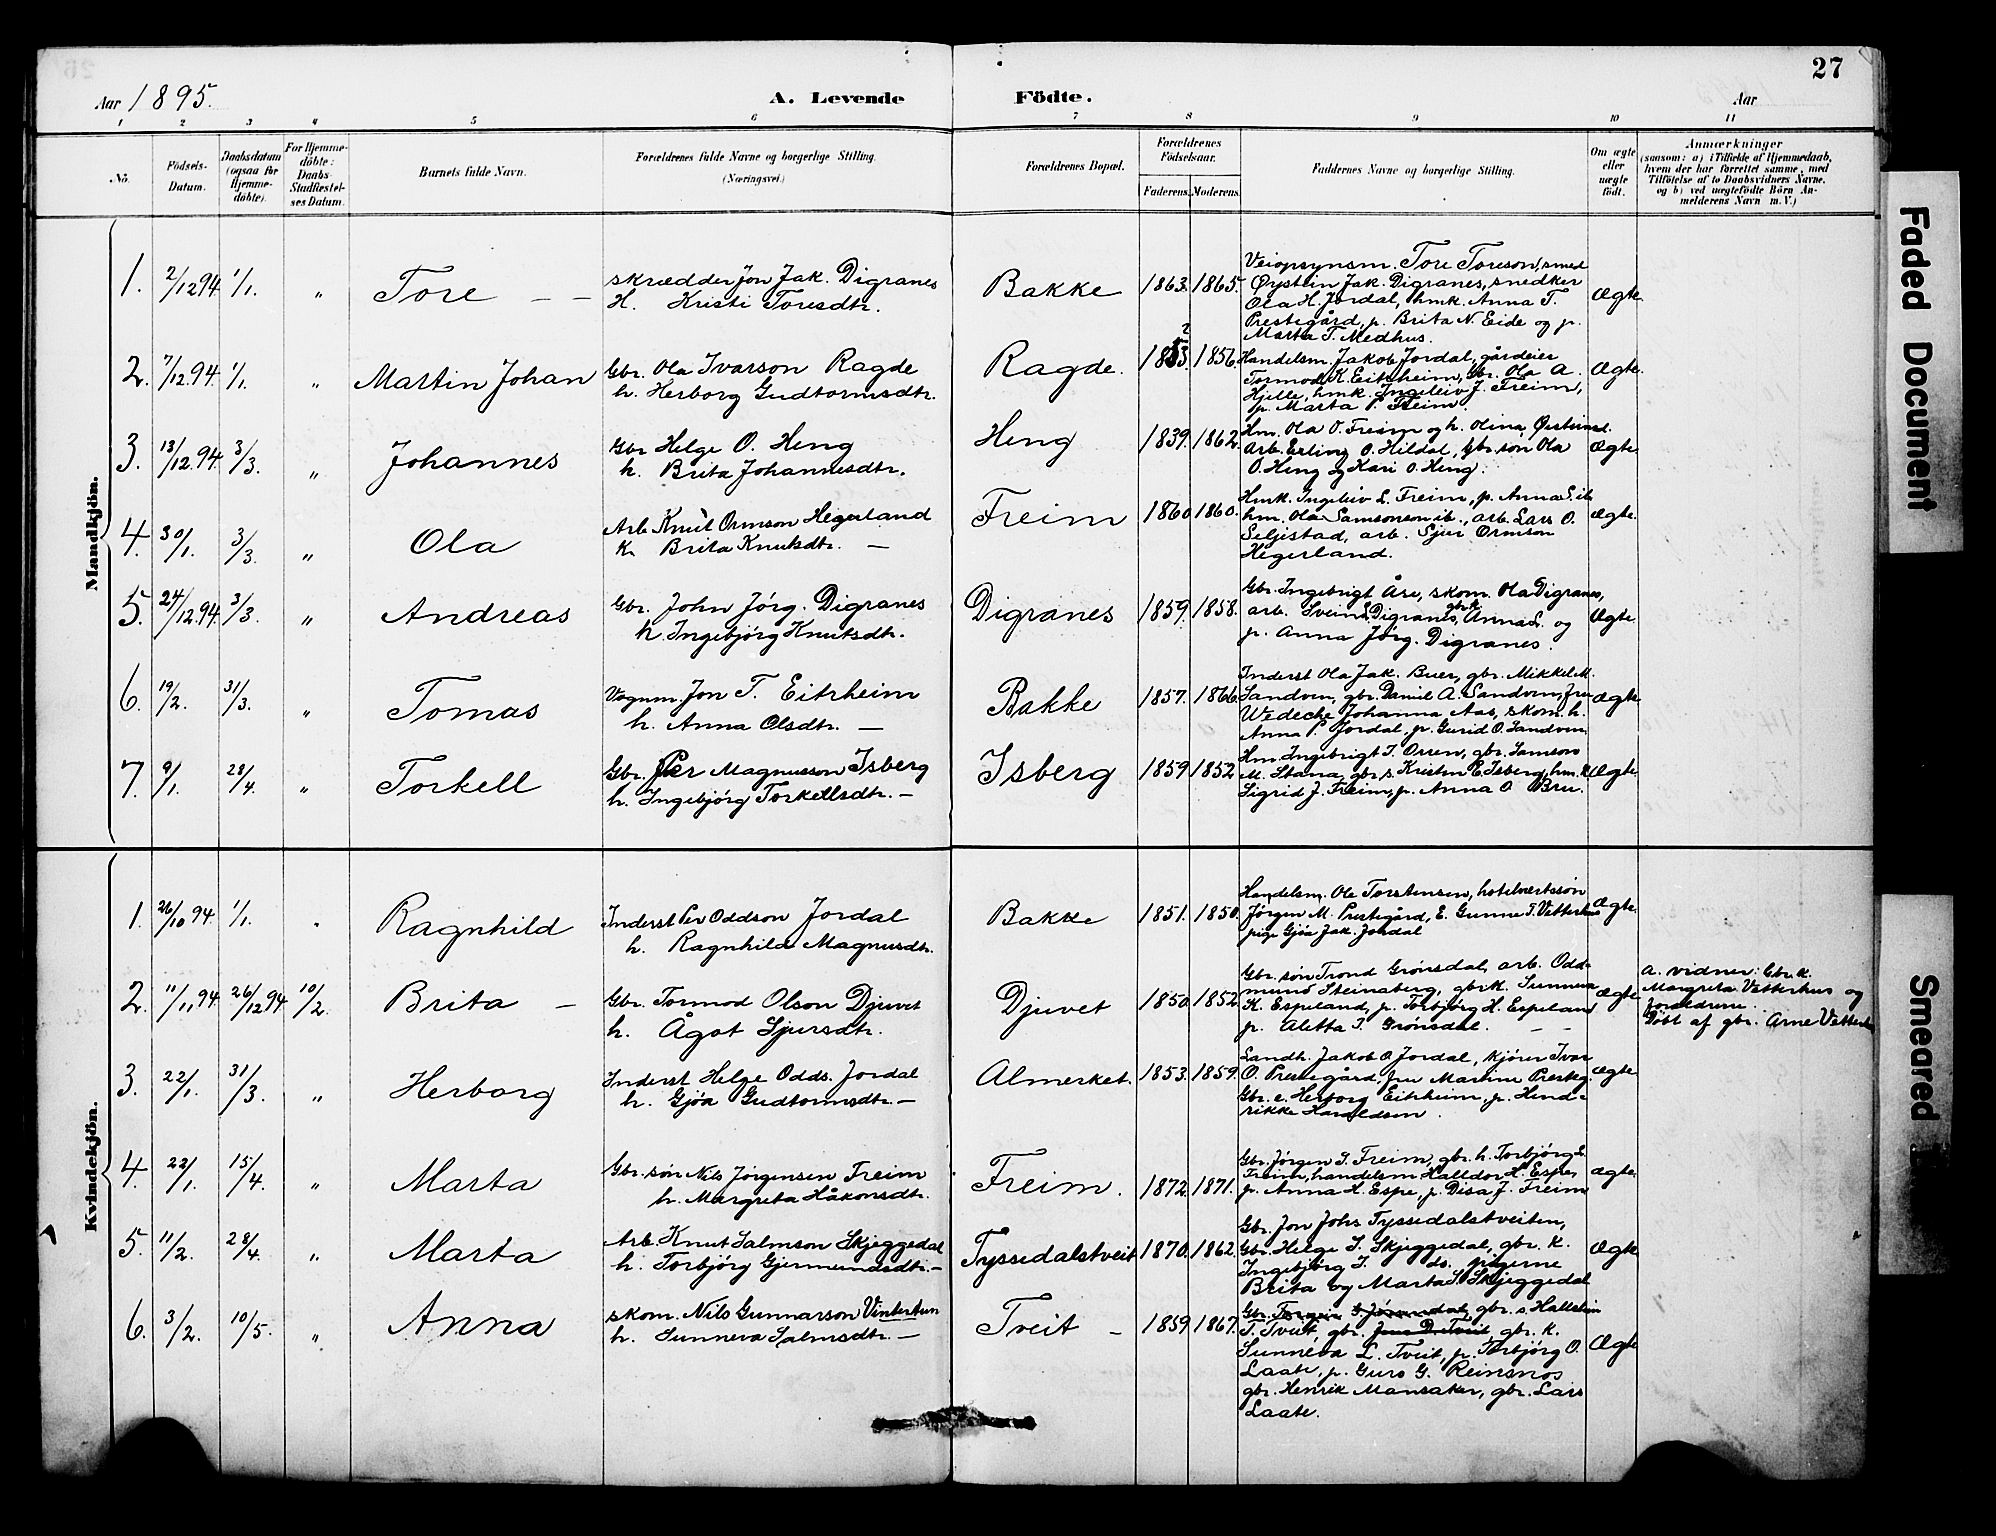 27
Aar 1895.
A. Levende Födte.
Aar
1 2 3 4 5 6 7 8 9 10 11
No.
Födsels-Datum.
Daabsdatum (ogsaa for Hjemme-döbte).
For Hjemme-döbte: Daabs-Stadfæstel-ses Datum.
Barnets fulde Navn.
Forældrenes fulde Navne og borgerlige Stilling. (Næringsvei.)
Forældrenes Bopæl.
Forældrenes Födselsaar.
Faderens. Moderens.
Faddernes Navne og borgerlige Stilling.
Om ægte eller uægte födt.
Anmærkninger
(saasom: a) i Tilfælde af Hjemmedaab, hvem der har forrettet samme, med Tilföielse af to Daabsvidners Navne, og b) ved uægtefödte Börn An-melderens Navn m. V.)
Mandkjön.
1. 2/12 94 1/1. " Tore — —
skrædder Jon Jak. Digranes
H. Kristi Toresdtr.
Bakke 1863. 1865.
Veiopsynsm. Tore Toreson, smed
Øystein Jak. Digranes, snedker
Ola H. Jordal, hmk. Anna T.
Prestegård, p. Brita N. Eide og p.
Marta T. Medhus.
Ægte
2. 7/12.94. 1/1. " Martin Johan
Gbr. Ola Ivarson Ragde
h. Herborg Gudtormsdtr.
Ragde. 1856.
Handelsm. Jakob Jordal, gårdeier
Tormod K. Eitrheim, gbr. Ola A.
Hjelle, hmk. Ingeleiv J. Freim,
p. Marta P. Freim.
Ægte.
3. 13/12.94 3/3. " Johannes
Gbr Helge O. Heng
h. Brita Johannesdtr.
Heng 1839. 1862.
Hm. Ola O. Freim og h. Olina Øisteinsd.
Arb. Erling O. Hildal, gbr. søn Ola
O. Heng og Kari O. Heng.
Ægte
4. 30/1. 3/3. " Ola
Arb. Knut Ormson Hegerland
k. Brita Knutsdtr. —
Freim 1860 1860.
Hmk. Ingeleiv L. Freim, p. Anna S. ib
hm. Ola Samsonsen ib., arb. Lars O.
Seljestad, arb. Sjur Ormson
Hegerland.
Ægte.
5. 24/12.94. 3/3. " Andreas
Gbr. John Jórg. Digranes
h. Ingebjórg Knutsdtr.
Digranes 1859. 1858.
Gbr. Ingebrigt Åse, skom. Ola Digranes,
arb. Svein S. Digranes, gbrk. Anna L. og
p. Anna Jórg. Digranes.
Ægte.
6. 19/2. 31/3. " Tomas
Vognm. Jon T. Eitrheim
h. Anna Olsdtr. —
Bakke 1857. 1866.
Inderst Ola Jak. Buer, gbr. Mikkel M.
Sandven, gbr. Daniel A. Sandven, fru
Wedecke Johanna Aas, skom. h.
Anna P. Jordal, p. Gurid O. Sandven
Ægte
7. 9/1. 28/4. " Torkell
Gbr. Per Magnusson Isberg
h. Ingebjórg Torkellsdtr. —
Isberg 1859 1852
Hm. Ingebrigt T. Orren, gbr. Samson
M. Stana, gbr. s. Kristen E. Isberg, hm. k.
Sigrid J. Freim, p. Anna O Bru.
Ægte.
Kvindekjön.
1. 26/10 94. 1/1. " Ragnhild
Inderst Per Oddson Jordal
h. Ragnhild Magnusdtr.
Bakke 1851. 1850.
Handelsm. Ole Torstensen, hotelværtssøn
Jørgen M. Prestegård, E. Gunne T. Vetterhus
pige Gjøa Jak. Jordal
Ægte.
2. 11/11 94. 26/12 94 10/2. Brita —
Gbr. Tormod Olson Djuvet
h. Ågot Sjursdtr.
Djuvet 1850. 1852
Gbr. søn Trond Grønsdal, arb. Odd-
mund Steinaberg, gbrk. Sunneva
K. Espeland, p. Torbjørg H. Espeland
p. Aletta T. Grønsdal. — —
Ægte
a. vidner: Gbr. k.
Margreta Vetterhus og
forældrene.
Döbt af gbr. Arne Vetterhus
3. 22/1. 31/3. " Herborg
Inderst Helge Odds. Jordal
h. Gjøa Gudtormsdtr. —
Almerket. 1853. 1859.
Landh. Jakob O. Jordal, kjører Ivar
O. Prestegård, fru Martine Presteg.
Gbr. e. Herborg Eitrheim, p. Hend-
rikke Haraldsen.
Ægte.
4. 22/1. 15/4. " Marta
Gbr. søn Nils Jørgensen Freim
h. Margreta Håkonsdtr.
Freim. 1872 1871.
Gbr. Jørgen I. Freim, gbr. h. Torbjørg L.
Freim, handelsm Halldor H. Espe,
p. Anna H. Espe, p. Disa J. Freim
Ægte.
5. 11/2. 28/4. " Marta
Arb. Knut Salmson Skjeggedal
h. Torbjórg Gjermundsdtr. —
Tyssedalstveit 1870. 1862.
Gbr. Jon Johs Tyssedalstveiten,
Gbr. Helge S. Skjeggedal, gbr. k.
Ingebjórg J. do. pigerne
Brita og Marta S. Skjeggedal
Ægte
6. 3/2. 10/5. " Anna
skom. Nils Gunnarson Vintertun
h. Sunneva Salmsdtr. —
Tveit — 1859 1867.
Gbr. gbr. s. Hallstein
T. Tveit, gbr. Jens D. Tveit, gbr. k.
Sunneva L. Tveit, p. Torbjórg O.
Laate, p. Guro G. Reinsnos
gbr. Henrik Mansaker, gbr. Lars
Laate.
Ægte
Faded Document
Smeared